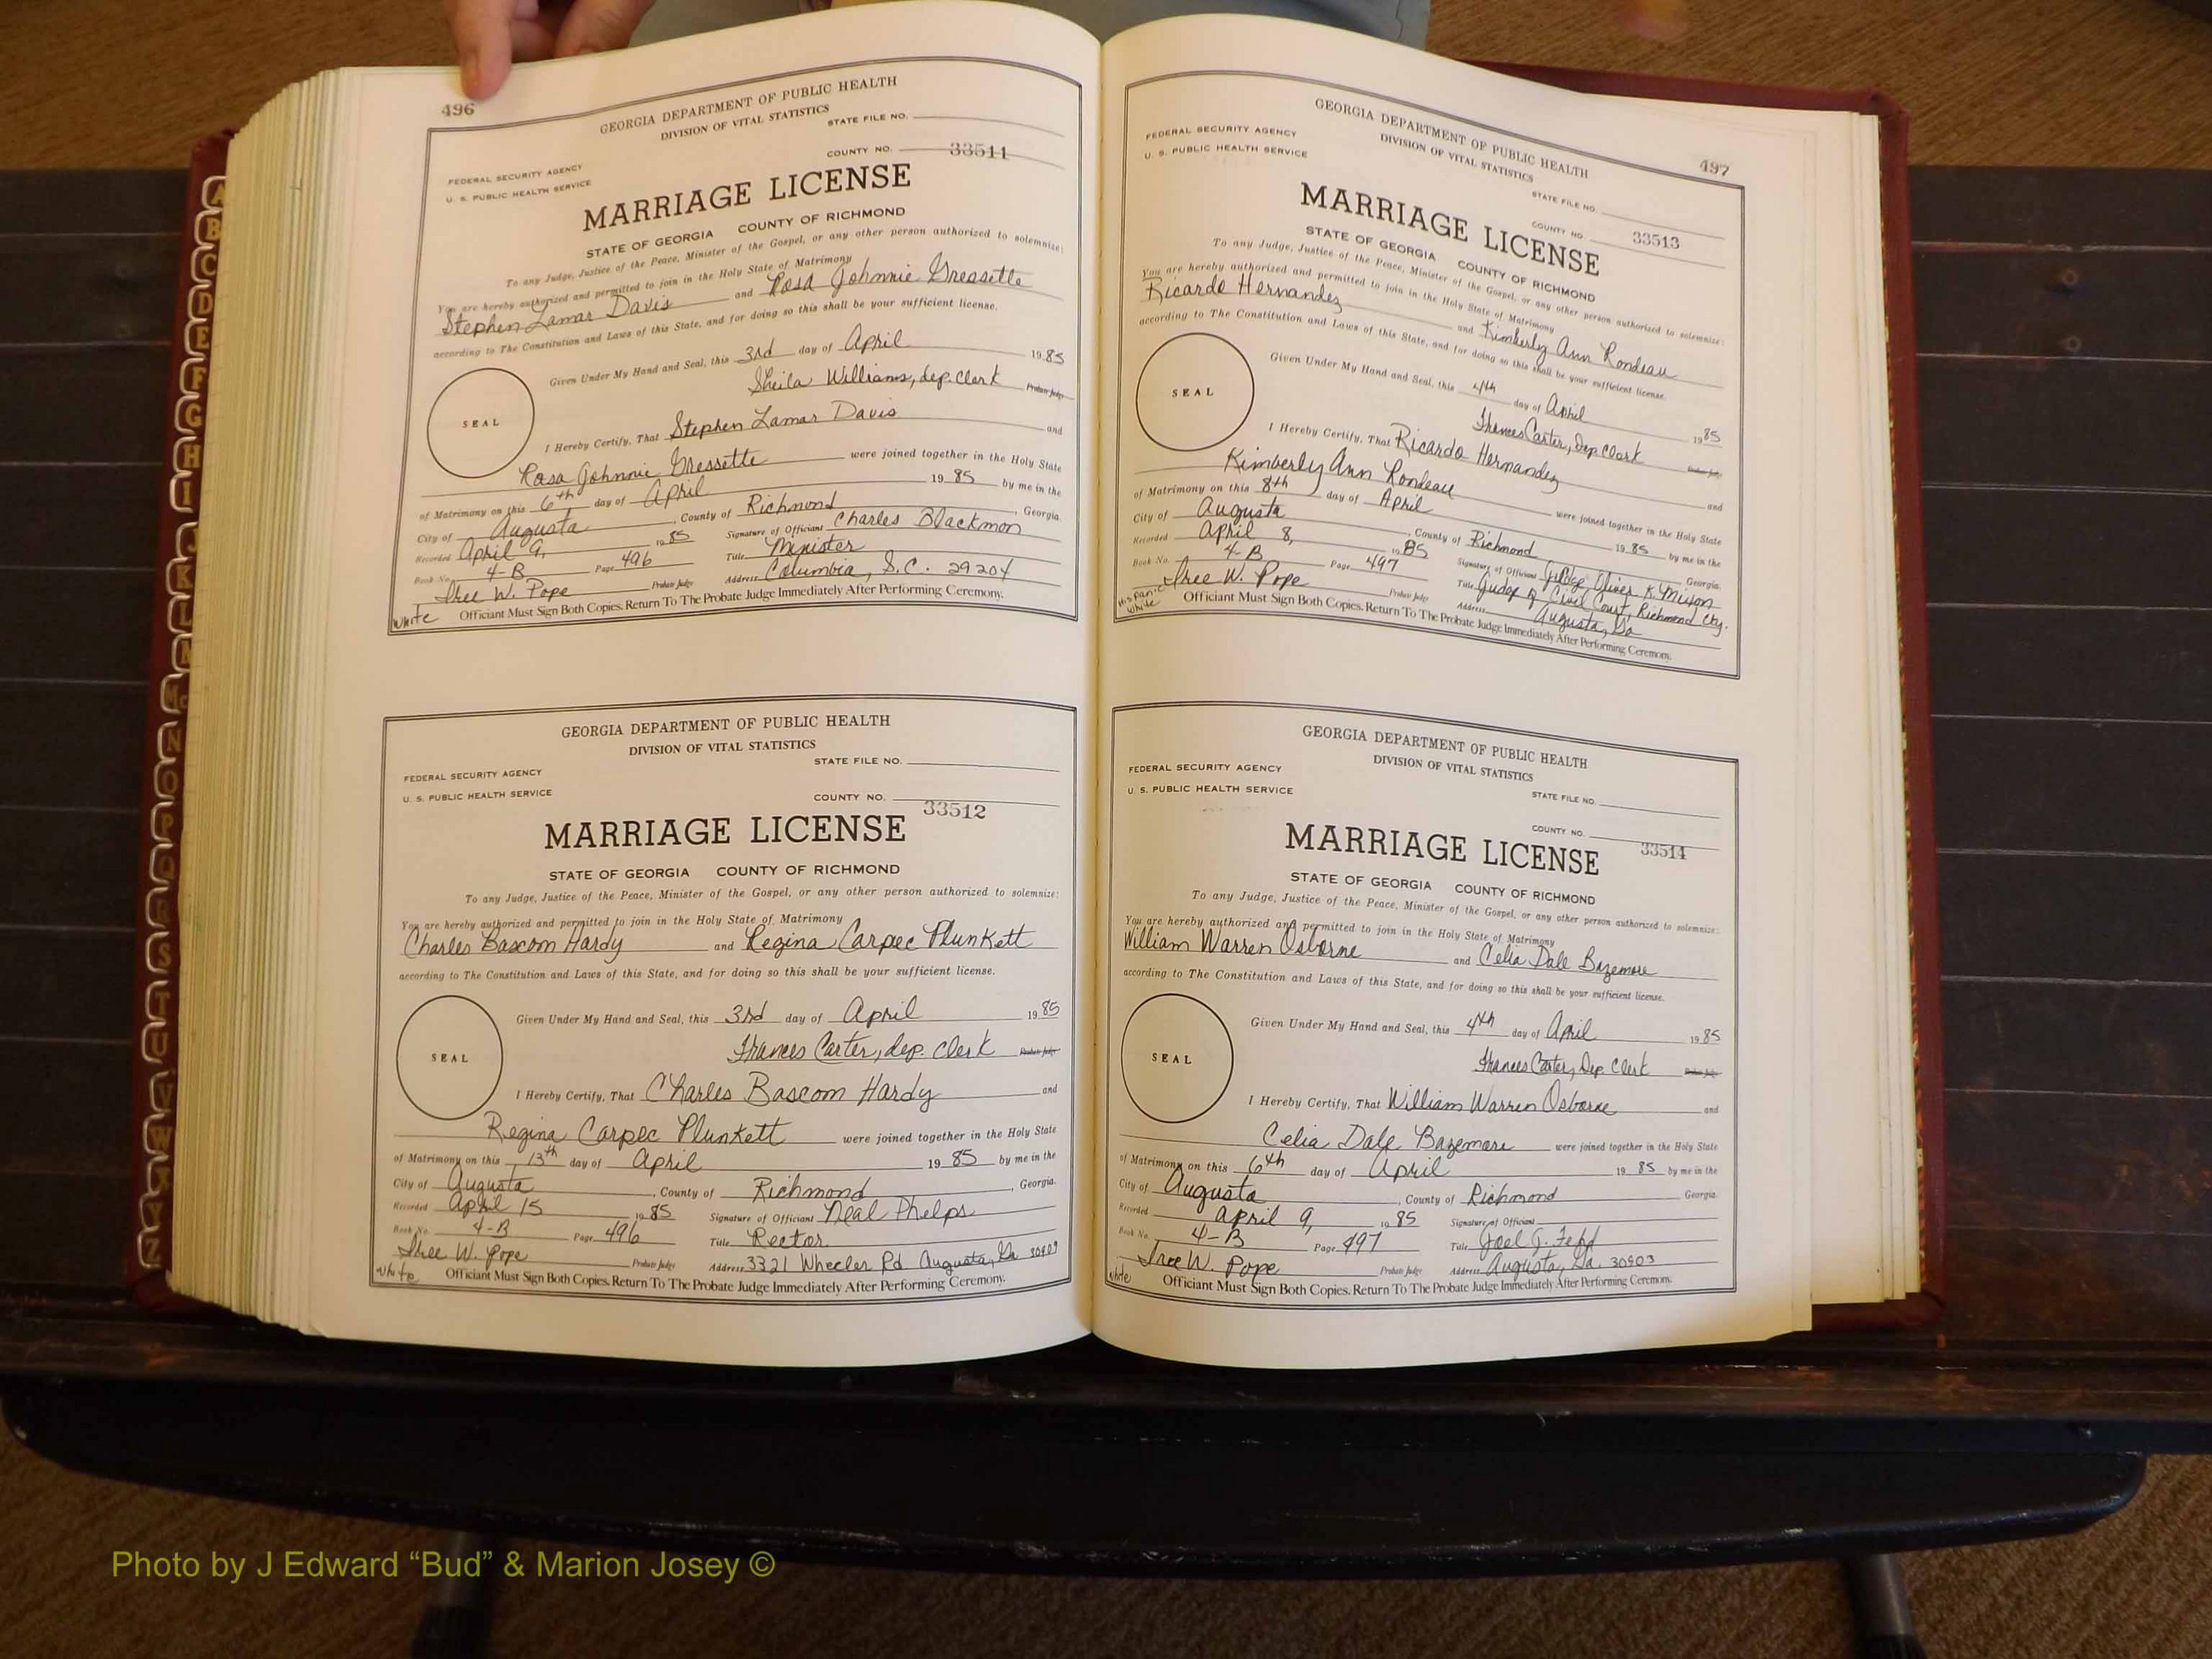 496
GEORGIA DEPARTMENT OF PUBLIC HEALTH
DIVISION OF VITAL STATISTICS
STATE FILE NO.
COUNTY NO. 33511
FEDERAL SECURITY AGENCY
U. S. PUBLIC HEALTH SERVICE
MARRIAGE LICENSE
STATE OF GEORGIA COUNTY OF RICHMOND
To any Judge, Justice of the Peace, Minister of the Gospel, or any other person authorized to solemnize:
You are hereby authorized and permitted to join in the Holy State of Matrimony
Stephen Lamar Davis and Rosa Johnnie Gressette
according to The Constitution and Laws of this State, and for doing so this shall be your sufficient license.
Given Under My Hand and Seal, this 3rd day of April 1985
Sheila Williams, dep. clerk Probate Judge
SEAL
I Hereby Certify, That Stephen Lamar Davis and
Rosa Johnnie Gressette were joined together in the Holy State
of Matrimony on this 6th day of April 1985 by me in the
City of Augusta, County of Richmond, Georgia.
Recorded April 9, 1985 Signature of Officiant Charles Blackmon
Book No. 4-B Page 496 Title Minister
Iree W. Pope Probate Judge Address Columbia, S.C. 29204
white Officiant Must Sign Both Copies. Return To The Probate Judge Immediately After Performing Ceremony.
GEORGIA DEPARTMENT OF PUBLIC HEALTH
DIVISION OF VITAL STATISTICS
STATE FILE NO.
FEDERAL SECURITY AGENCY
U. S. PUBLIC HEALTH SERVICE
COUNTY NO. 33512
MARRIAGE LICENSE
STATE OF GEORGIA COUNTY OF RICHMOND
To any Judge, Justice of the Peace, Minister of the Gospel, or any other person authorized to solemnize:
You are hereby authorized and permitted to join in the Holy State of Matrimony
Charles Bascom Hardy and Regina Carpec Plunkett
according to The Constitution and Laws of this State, and for doing so this shall be your sufficient license.
Given Under My Hand and Seal, this 3rd day of April 1985
Frances Carter, dep. clerk Probate Judge
SEAL
I Hereby Certify, That Charles Bascom Hardy and
Regina Carpec Plunkett were joined together in the Holy State
of Matrimony on this 13th day of April 1985 by me in the
City of Augusta, County of Richmond, Georgia.
Recorded April 15 1985 Signature of Officiant Neal Phelps
Book No. 4-B Page 496 Title Rector
Iree W. Pope Probate Judge Address 3321 Wheeler Rd Augusta, Ga 30909
white Officiant Must Sign Both Copies. Return To The Probate Judge Immediately After Performing Ceremony.
497
GEORGIA DEPARTMENT OF PUBLIC HEALTH
DIVISION OF VITAL STATISTICS
FEDERAL SECURITY AGENCY
U. S. PUBLIC HEALTH SERVICE
STATE FILE NO.
COUNTY NO. 33513
MARRIAGE LICENSE
STATE OF GEORGIA COUNTY OF RICHMOND
To any Judge, Justice of the Peace, Minister of the Gospel, or any other person authorized to solemnize:
You are hereby authorized and permitted to join in the Holy State of Matrimony
Ricardo Hernandez and Kimberly Ann Rondeau
according to The Constitution and Laws of this State, and for doing so this shall be your sufficient license.
Given Under My Hand and Seal, this 4th day of April 1985
Frances Carter, Dep Clerk Probate Judge
SEAL
I Hereby Certify, That Ricardo Hernandez and
Kimberly Ann Rondeau were joined together in the Holy State
of Matrimony on this 8th day of April 1985 by me in the
City of Augusta, County of Richmond Georgia.
Recorded April 8, 1985 Signature of Officiant Judge Oliver K. Mixon
Book No. 4-B Page 497 Title Judge of Civil Court, Richmond Cty.
Iree W. Pope Probate Judge Address Augusta, Ga
Hispanic white Officiant Must Sign Both Copies. Return To The Probate Judge Immediately After Performing Ceremony.
GEORGIA DEPARTMENT OF PUBLIC HEALTH
DIVISION OF VITAL STATISTICS
FEDERAL SECURITY AGENCY
U. S. PUBLIC HEALTH SERVICE
STATE FILE NO.
COUNTY NO. 33514
MARRIAGE LICENSE
STATE OF GEORGIA COUNTY OF RICHMOND
To any Judge, Justice of the Peace, Minister of the Gospel, or any other person authorized to solemnize:
You are hereby authorized and permitted to join in the Holy State of Matrimony
William Warren Osborne and Celia Dale Bazemore
according to The Constitution and Laws of this State, and for doing so this shall be your sufficient license.
Given Under My Hand and Seal, this 4th day of April 1985
Frances Carter, Dep Clerk Probate Judge
SEAL
I Hereby Certify, That William Warren Osborne and
Celia Dale Bazemore were joined together in the Holy State
of Matrimony on this 6th day of April 1985 by me in the
City of Augusta, County of Richmond Georgia.
Recorded April 9, 1985 Signature of Officiant
Book No. 4-B Page 497 Title Joel J.
Iree W. Pope Probate Judge Address Augusta, Ga. 30903
white Officiant Must Sign Both Copies. Return To The Probate Judge Immediately After Performing Ceremony.
A
B
C
D
E
F
G
H
I
J
K
L
M
Mc
N
O
P
Q
R
S
T
U
V
W
X
Y
Z
Photo by J Edward “Bud” & Marion Josey ©